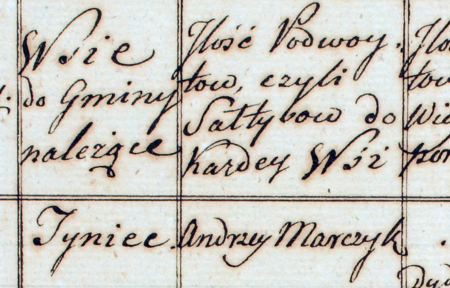 Wsie
do Gminy
należące
Ilość Podwoy.
tow, czyli
Sałtysow do
Każdey Wśi
Tyniec.
Andrzey Marczyk